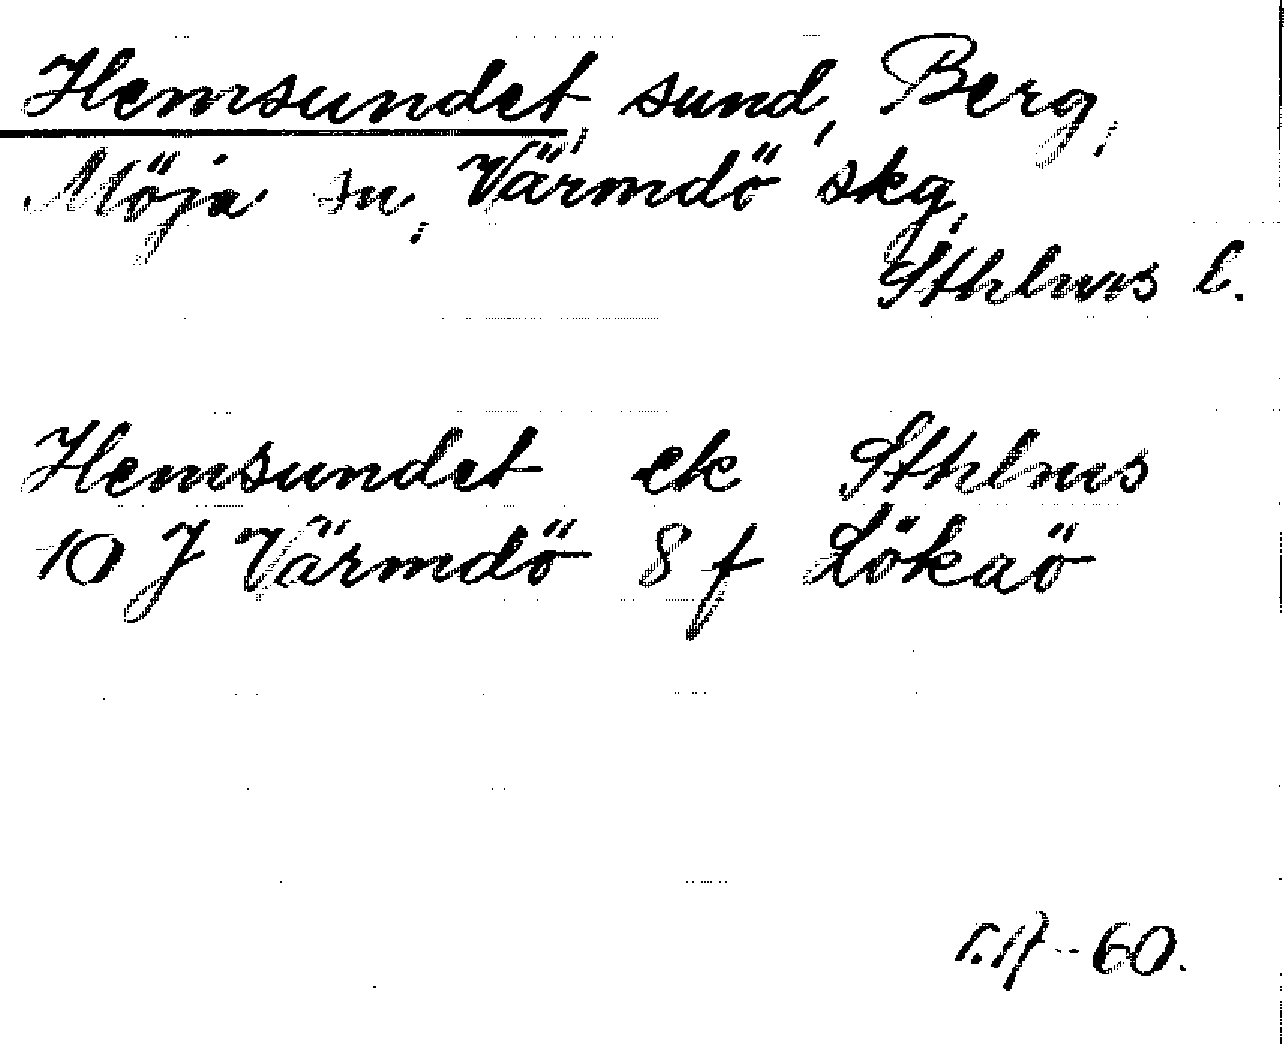 Hemsundet, sund, Berg,
Möja sn, Värmdö skg,
Sthlms l.
Hemsundet ek Sthlms
10 J Värmdö 8 f Lökaö
-60.